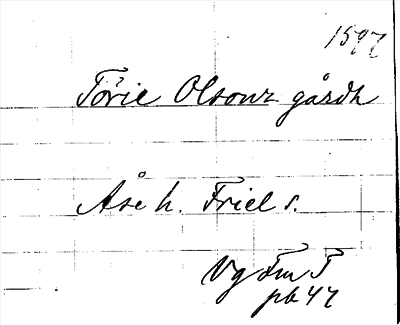 1597
Törie Olsonz gårdh
Åse h. Friel s.
Vg Fm T
pb 47